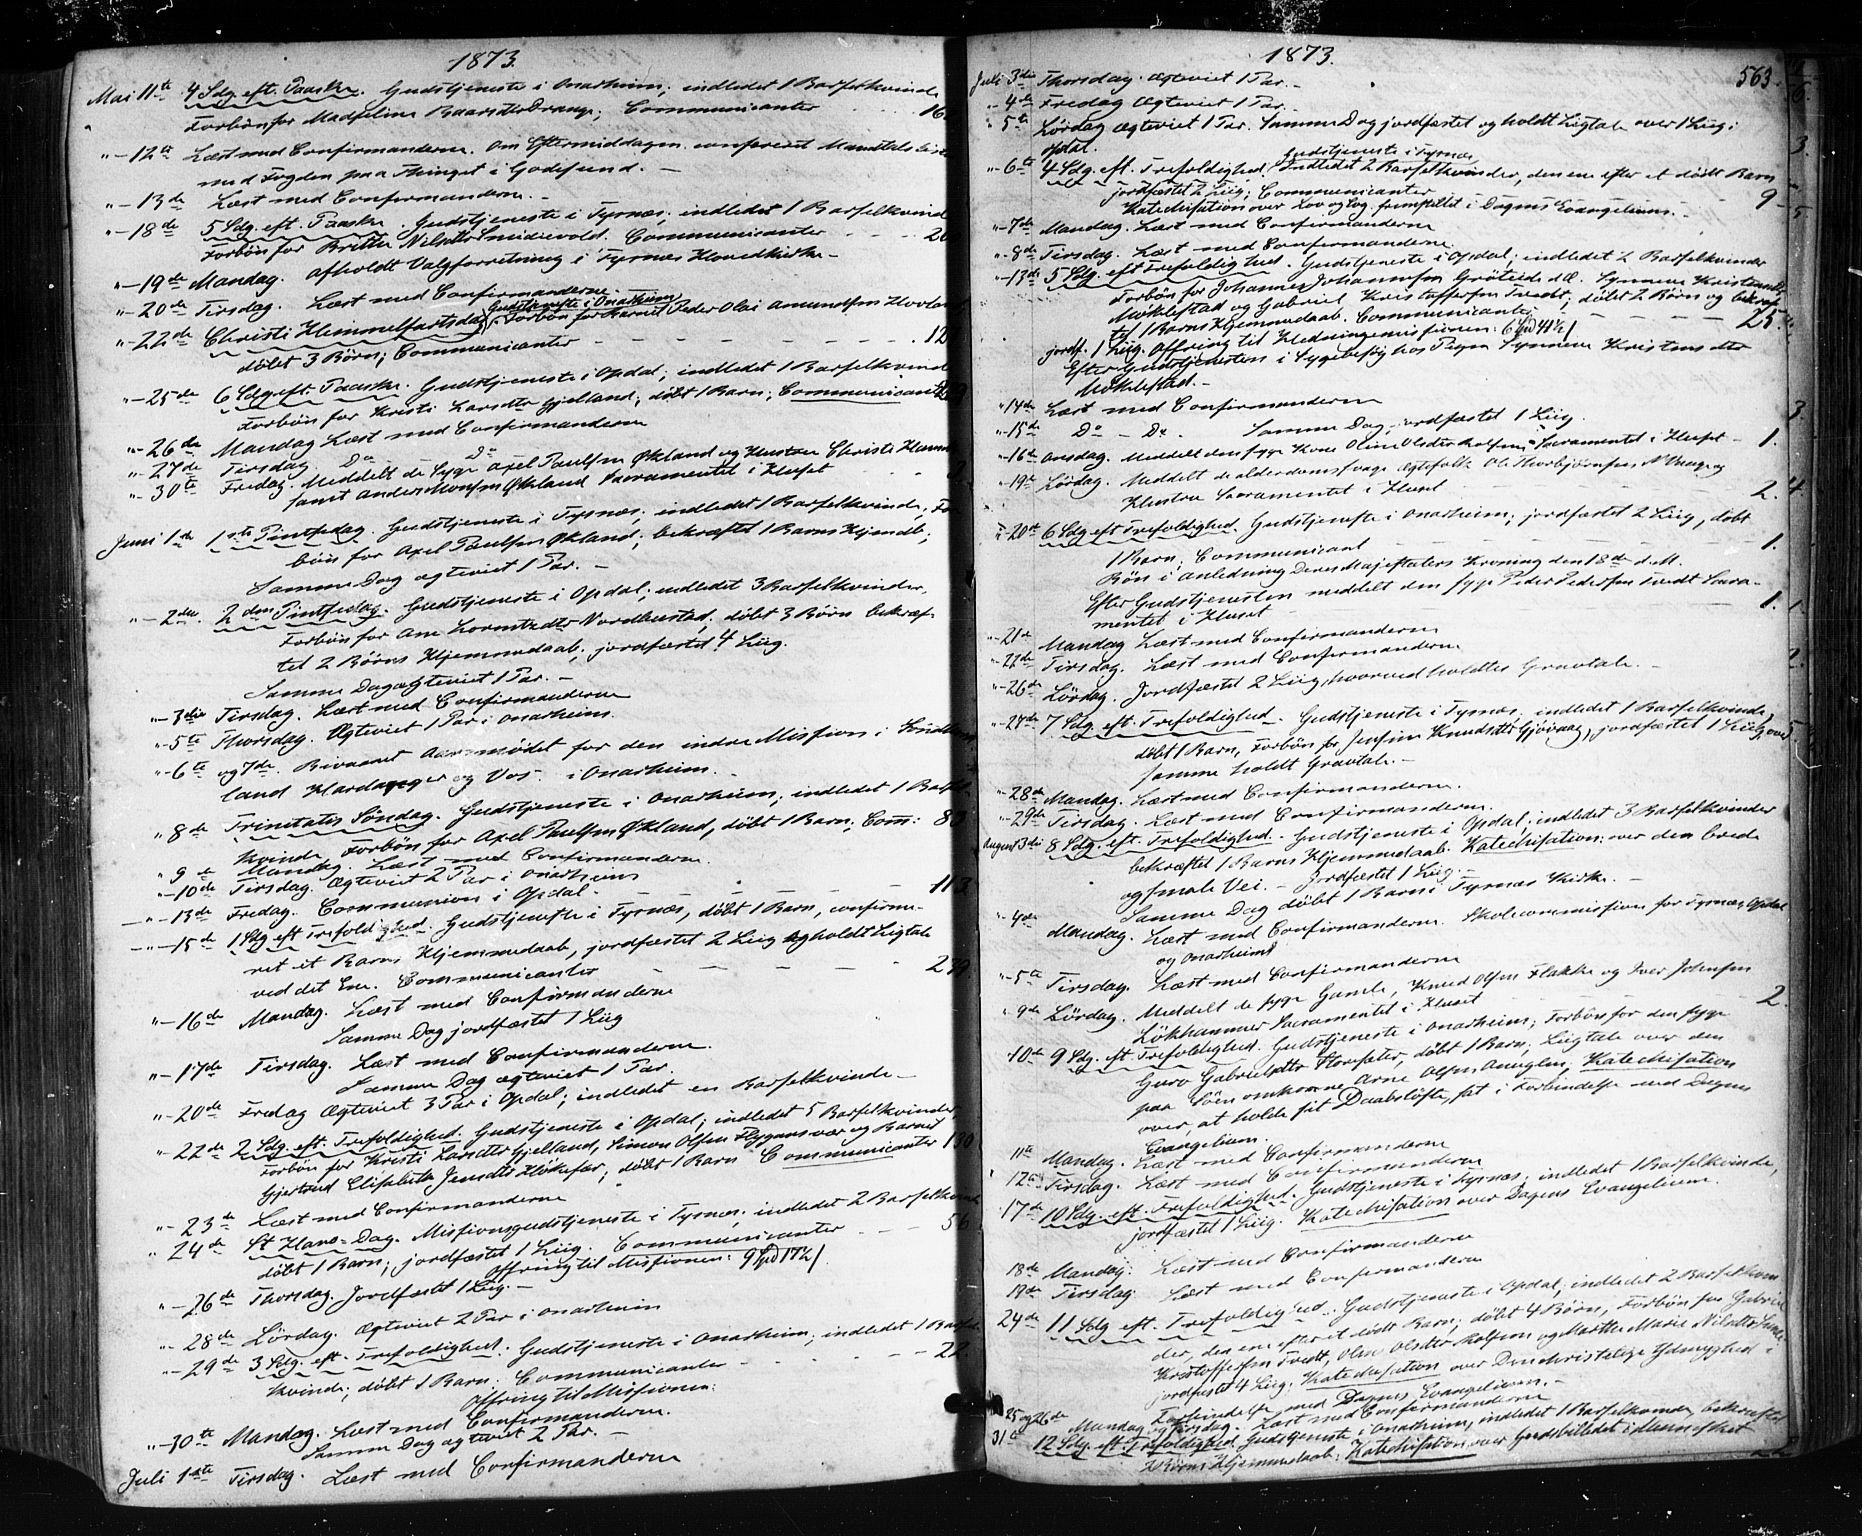 1873.
Mai 11te 4 Sdg. eft. Paaske. Gudstjeneste i Onarheim; indledet 1 Barselkvinde
Forbøn for Madseline Baarsdtr Drange; Communicanter 16
"-12te Læst med Confirmanderne. Om Eftermiddagen confereret Mandtalsliste
med Fogden paa Thinget i Godøsund. -
"-13de Læst med Confirmanderne.
"-18de 5 Sdg. eft. Paaske. Gudstjeneste i Tysnæs; indledet 1 Barselkvind
Forbøn for Brithe Nilsdtr Smidievold. Communicanter - - - 20
"-19de Mandag. Afholdt Valgforretning i Tysnæs Hovedkirke. -
"-20de Tirsdag. Læst med Confirmanderne.
Gudstjeneste i Onarheim
"-22de Christi Himmelfartsdag. Forbøn for Barnet Peder Olai Amundsen Hovland
døbt 3 Børn; Communicanter - - - - - - - 12
"-25de 6 Sdg. eft. Paaske. Gudstjeneste i Opdal; indledet 1 Barselkvind
Forbøn for Kristi Larsdtr Gjelland; døbt 1 Barn; Communicant
"-26de Mandag Læst med Confirmanderne
"-27de Tirsdag Do Do
"-30te Fredag. Meddelt de Syge Axel Paulsen Økland og Hustru Christi
samt Anders Monsen Økland Sacramentet i Huset
Juni 1ste 1ste Pintsedag. Gudstjeneste i Tysnæs; indledet 1 Barselkvinde, For
bøn for Axel Paulsen Økland; bekræftet 1 Barns Hjemdb;
Samme Dag ægteviet 1 Par. -
"-2den. 2den Pintsedag. Gudstjeneste i Opdal; indledet 3 Barselkvinder,
Forbøn for Ane Lorentzdtr Nordhustad; døbt 3 Børn bekræf-
tet 2 Børns Hjemmedaab; jordfæstet 4 Liig.
Samme Dag ægteviet 1 Par. -
"-3die Tirsdag. Læst med Confirmanderne
"-5te Thorsdag. Ægteviet 1 Par i Onarheim.
"-6te og 7de. Bivaanet Aarsmødet for den indre Mission i Søndhord
land Hardanger og Vos - i Onarheim.
"8de Trinitatis Søndag. Gudstjeneste i Onarheim; indledet 1 Barsel-
kvinde Forbøn for Axel Paulsen Økland, døbt 1 Barn; Com: 80
"9de Mandag. Læst med Confirmanderne.
"-10de Tirsdag. Ægteviet 2 Par i Onarheim
"-13de Fredag. Communion i Opdal - - - - - - 113
"-15de 1 Sdg eft Trefoldighed. Gudstjeneste i Tysnæs, døbt 1 Barn, confirme-
ret et Barns Hjemmedaab, jordfæstet 2 Liig og holdt Ligtale
ved det Ene. Communicanter - - - - - 239
"-16de Mandag. Læst med Confirmanderne
Samme Dag jordfæstet 1 Liig
"-17de Tirsdag. Læst med Confirmanderne.
Samme Dag ægteviet 1 Par.
"-20de Fredag Ægteviet 3 Par i Opdal; indledet en Barselkvinde -
"22de 2 Sdg. eft. Trefoldighed. Gudstjeneste i Opdal; indledet 5 Barselkvinder,
Forbøn for Kristi Larsdtr Gjelland, Simon Olsen Flygansvær og Barnet
Gjertrud Elisabeth Jensdtr Hløkefær; døbt 1 Barn Communicanter 130
"-23de Læst med Confirmanderne
"24de St Hans=Dag. Missionsgudstjeneste i Tysnæs; indledet 2 Barselkvind
døbt 1 Barn; jordfæstet 1 Liig. Communicanter - - 56
Offring til Missionen: 9 Spd 17½/
"-26de Thorsdag. Jordfæstet 1 Liig. -
"28de Lørdag. Ægteviet 2 Par i Onarheim
"-29de 3 Sdg. eft. Trefoldighed. Gudstjeneste i Onarheim; indledet 1 Barsel-
kvinde; døbt 1 Barn. Communicanter - - - - - 22
Offring til Missionen:
"-30te Mandag. Læst med Confirmanderne.
Samme Dag ægteviet 2 Par. -
Juli 1ste Tirsdag. Læst med Confirmanderne
1873. 563.
Juli 3die Thorsdag. Ægteviet 1 Par. -
"4de Fredag Ægteviet 1 Par. -
"5te Lørdag Ægteviet 1 Par. Samme Dag jordfæstet og holdt Ligtale over 1 Liig i
Opdal.
Gudstjeneste i Tysnæs
"-6te 4 Sdg. eft. Trefoldighed Indledet 2 Barselkvinder, den ene efter et dødt Barn
jordfæstet 2 Liig; Communicanter 9
Katechisation over Lov og Evg. fremstillet i Dagens Evangelium. -
"-7de Mandag. Læst med Confirmanderne
"-8de Tirsdag. Læst med Confirmanderne
"-13de 5 Sdg. eft Trefoldighed. Gudstjeneste i Opdal; indledet 2 Barselkvinder
Forbøn for Johannes Johannesen Grøteide Synneve Kristensdtr
Møklestad og Gabriel Kristoffersen Tvedt; døbt 2 Børn og bekræf
tet 1 Barns Hjemmedaab. Communicanter - - - 25
jordf. 1 Liig. Offring til Hedningemissionen: 6 Spd 41½/
Efter Gudstjenesten i Sygebesøg hos Pigen Synneve Kristensdtr
Møklestad. -
"14de Læst med Confirmanderne
"-15de Do - Do. Samme Dag jordfæstet 1 Liig.
"-16de Onsdag. Meddelt den syge Kone Oline Olsdtr Kolsen Sacramentet i Huset - 1.
"-19de Lørdag. Meddelt de alderdomssvage Ægtefolk Ole Thorbjørnsen og
Hustru Sacramentet i Huset - - - 2.
"-20de 6 Sdg eft Trefoldighed. Gudstjeneste i Onarheim; jordfæstet 2 Liig, døbt
1 Barn, Communicant 1.
Bøn i Anledning Deres Majestæters Kroning den 18de d. M.
Efter Gudstjenesten meddelt den syge Peder Pedersen Tvedt Sacra-
mentet i Huset - - - - 1.
"-21de Mandag Læst med Confirmanderne
"-22de Tirsdag. Læst med Confirmanderne
"-26de Lørdag. Jordfæstet 2 Liig, hvorved holdtes Gravtale. -
"-27de 7 Sdg. eft. Trefoldighed. Gudstjeneste i Tysnæs; indledet 1 Barselkvinde,
døbt 1 Barn, Forbøn for Jensine Knudsdtr Gjøvaag, jordfæstet 1 Liig, over
samme holdt Gravtale. -
"28de Mandag. Læst med Confirmanderne.
"-29de Tirsdag. Læst med Confirmanderne.
August 3die 8 Sdg. eft. Trefoldighed. Gudstjeneste i Opdal; indledet 3 Barselkvinder
bekræftet 1 Barns Hjemmedaab. Katechisation: over den brede
og smale Vei. - Jordfæstet 1 Liig. -
Samme Dag døbt 1 Barn i Tysnæs Kirke. -
"-4de Mandag. Læst med Confirmanderne. Skolecommission for Tysnæs, Opdal
og Onarheim
"-5te Tirsdag. Læst med Confirmanderne
"9de Lørdag. Meddelt de syge Gamle, Knud Olsen Flakke og Iver Johnsen
Løkhammer Sacramentet i Huset 2.
"10de 9 Sdg. eft. Trefoldighed. Gudstjeneste i Onarheim; Forbøn for den syge
Guro Gabrielsdtr Flornæs, døbt 1 Barn; Ligtale over den
paa Søen omkomne Arne Olsen; Katechisation
over at holde sit Daabsløfte, sat i Forbindelse med Dagens
Evangelium.
11te Mandag. Læst med Confirmanderne
12te Tirsdag. Læst med Confirmanderne
"17de 10 Sdg. eft. Trefoldighed. Gudstjeneste i Tysnæs; indledet 1 Barselkvinde,
jordfæstet 1 Liig. Katechisation over Dagens Evangelium.
18de Mandag. Læst med Confirmanderne
19de Tirsdag. Læst med Confirmanderne
24de 11 Sdg. eft. Trefoldighed. Gudstjeneste i Opdal; indledet 2 Barselkvin
der, den ene efter et dødt Barn; døbt 4 Børn, Forbøn for Gabriel
Kristoffersen Tvedt, Oline Olsdtr Kolsen og Marthe Marie Nilsdtr
jordfæstet 4 Liig. Katechisation over Den christelige Ydmyghed i
Forbindelse med Dagens Evangelium. -
25 og 26de Mandag og Tirsdag. Læst med Confirmanderne
31te 12 Sdg. eft. Trefoldighed Gudstjeneste i Onarheim, indledet 1 Barselkvinde, bekræftet
2 Børns Hjemmedaab; Katechisation over Gudsbilledet i Mennesket